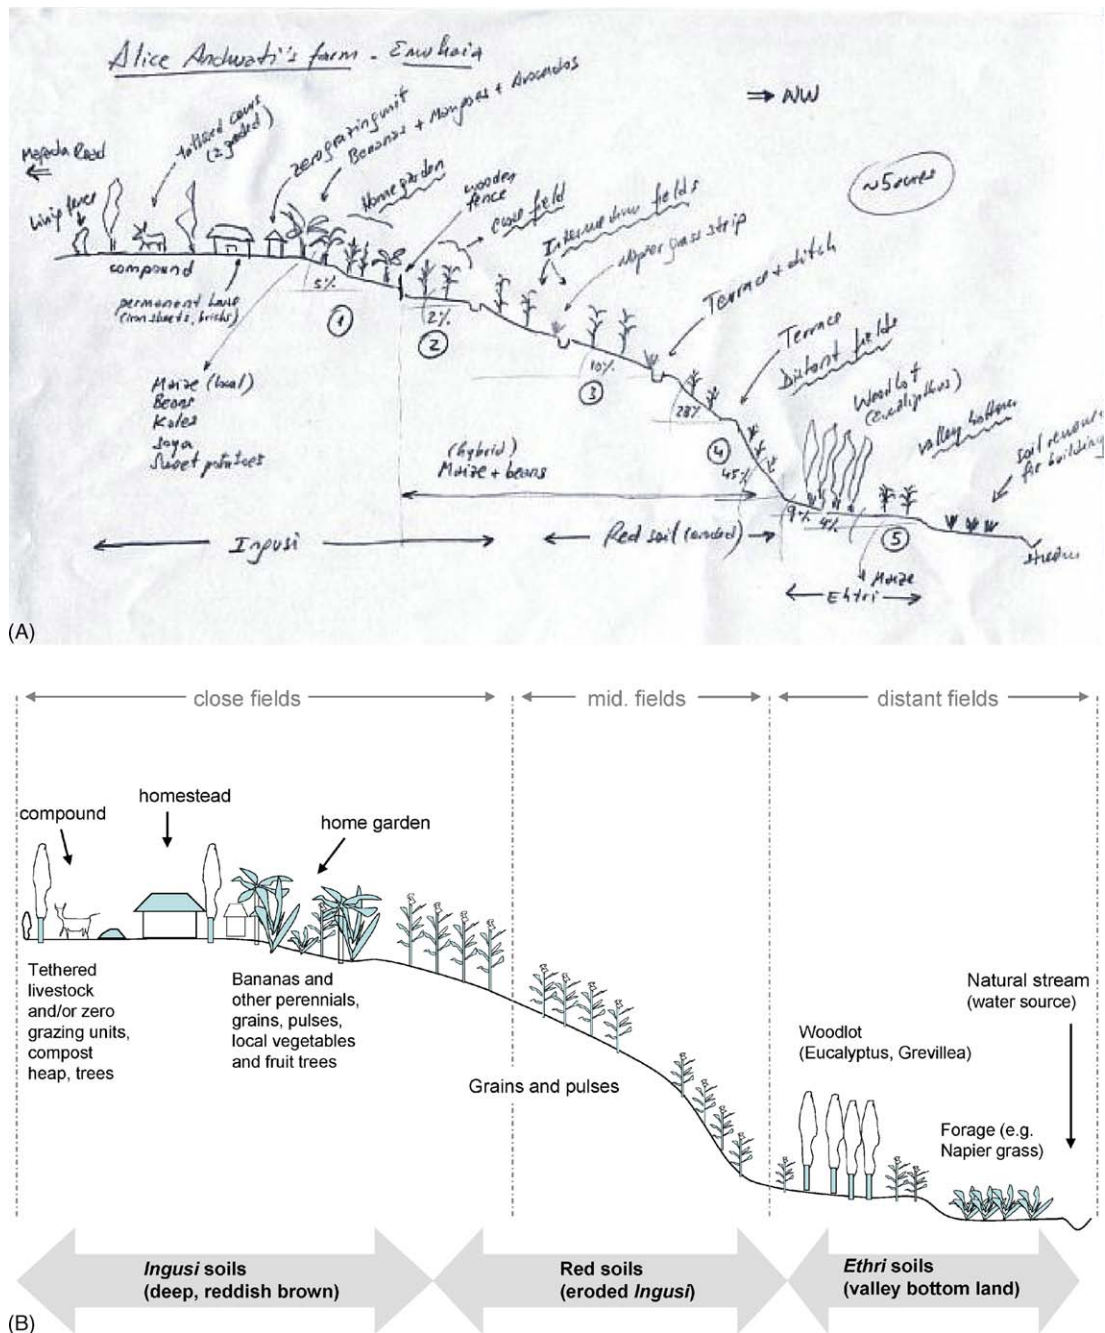 Alice Andwati's farm - Emuhaia
⇒ NW
~5 acres
Mafada Road
←
living fence
tethered cows
(2 graded)
zero grazing unit
Bananas + Mangoes + Avocados
Home garden
wooden
fence
close field
fields
Napier grass strip
Terrace + ditch
Terrace
Distant fields
Woodlot
(eucalyptus)
valley bottom
soil
for building
compound
permanent house
(iron sheets, bricks)
5%
1
2%
2
10%
3
28%
4
45%
9%
4%
5
Maize (local)
Beans
Kales
Soya
Sweet potatoes
(hybrid)
Maize + beans
Ingusi
Red soil (eroded)
Maize
Ehtri
stream
(A)
close fields
mid. fields
distant fields
compound
homestead
home garden
Tethered
livestock
and/or zero
grazing units,
compost
heap, trees
Bananas and
other perennials,
grains, pulses,
local vegetables
and fruit trees
Grains and pulses
Woodlot
(Eucalyptus, Grevillea)
Natural stream
(water source)
Forage (e.g.
Napier grass)
Ingusi soils
(deep, reddish brown)
Red soils
(eroded Ingusi)
Ethri soils
(valley bottom land)
(B)